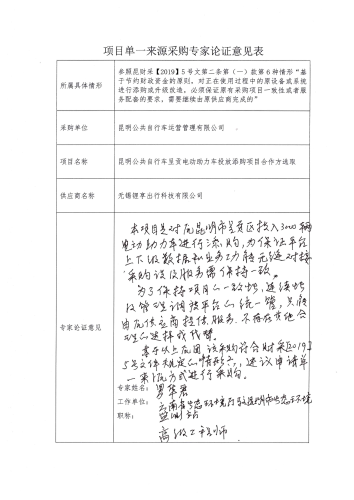 项目单一来源采购专家论证意见表
所属具体情形
参照昆财采【2019】5号文第二条第（一）款第6种情形“基
于节约财政资金的原则。对正在使用过程中的原设备或系统
进行添购或升级改造。必须保证原有采购项目一致性或者服
务配套的要求，需要继续由原供应商完成的”
采购单位
昆明公共自行车运营管理有限公司
项目名称
昆明公共自行车呈贡电动助力车投放添购项目合作方选取
供应商名称
无锡锂享出行科技有限公司
专家论证意见
本项目是对原昆明市呈贡区投入3000辆
电动助力车进行添购，为保证平台
上下级数据和业务功能无缝对接
采购设备及服务需保持一致。
为了保持项目的一致性，连续性
及管理调控平台的统一管，只能
由原供应商提供服务，不存在其他合
理的选择或代替。
基于以上原因，该采购符合昆财采[2019]
5号文件规定的情形六，建议申请单
一来源方式进行采购。
专家姓名：
工作单位：云南省生态环境厅驻昆明市生态环境
监测站
职称：
高级工程师